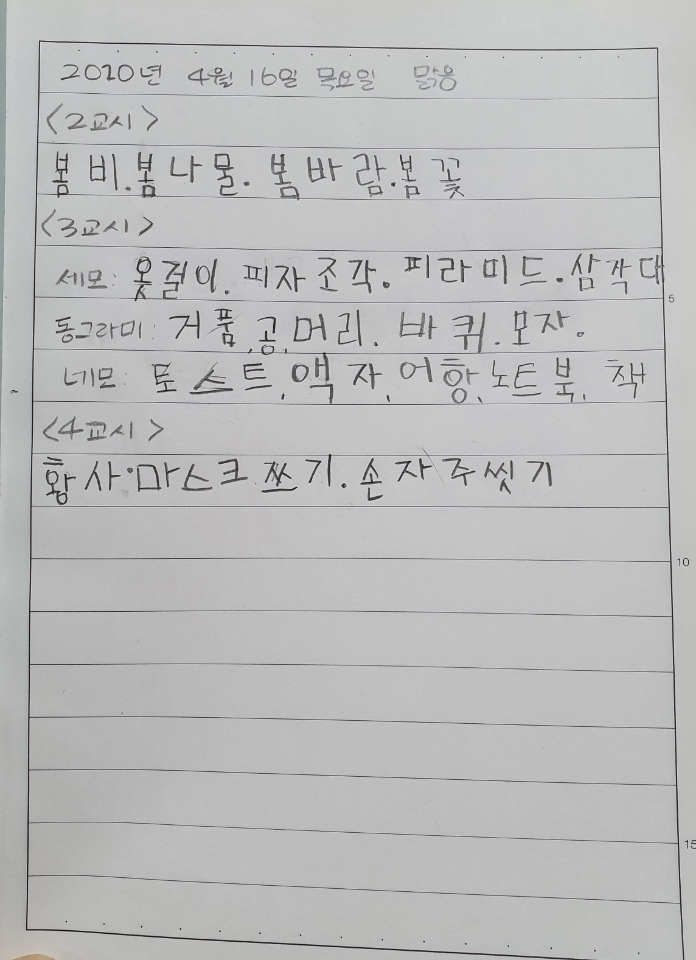 2020년 4월 16일 목요일 맑음
<2교시>
봄비.봄나물. 봄바람.봄꽃
<3교시>
세모: 옷걸이. 피자조각. 피라미드.삼각대
5
동그라미: 거품,공,머리. 바퀴.모자.
네모: 토스트,액자,어항,노트북, 책
<4교시>
황사·마스크 쓰기.손 자주씻기
10
15